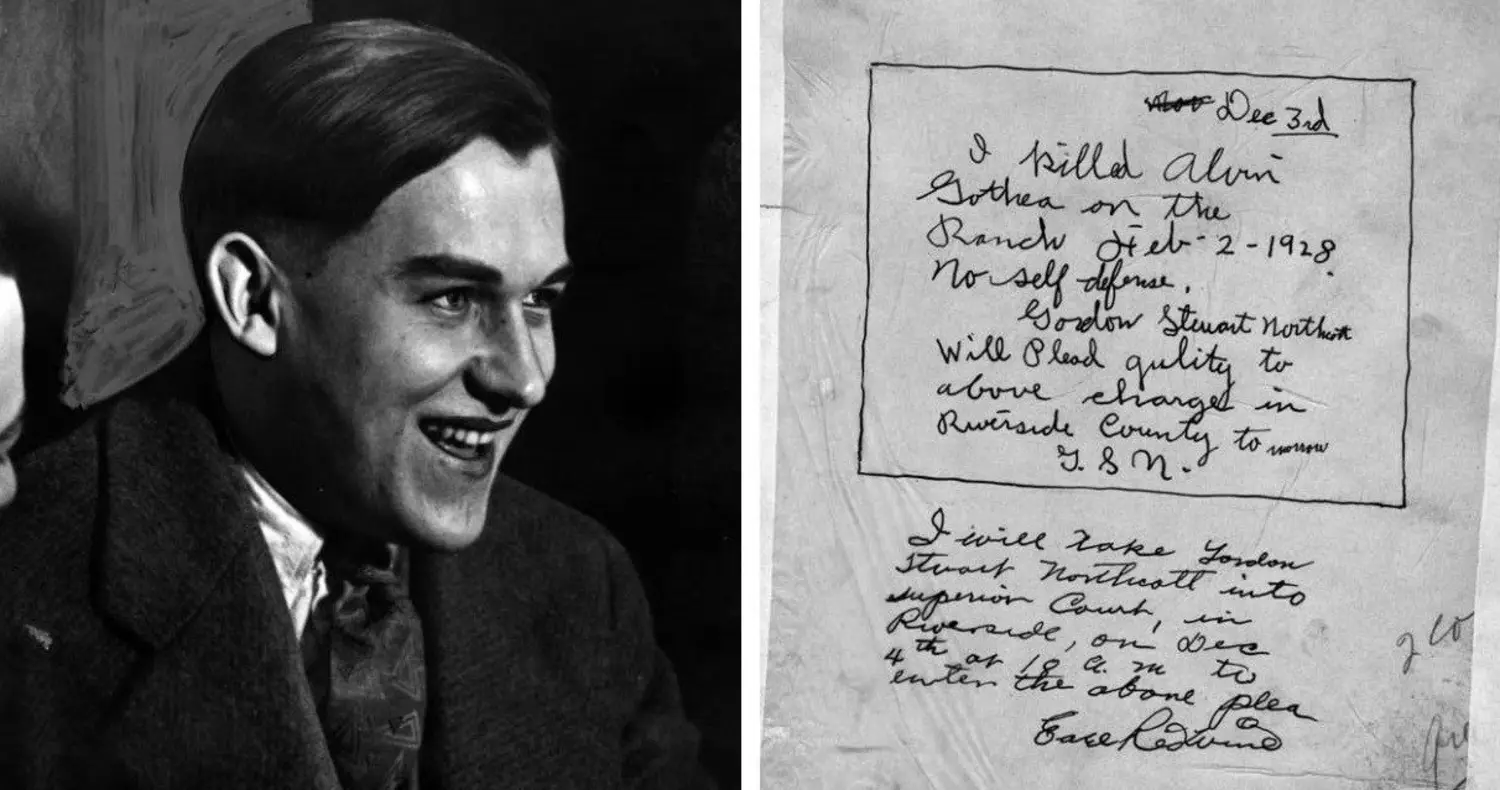 Dec 3rd
I killed Alvin
Gothea on the
Ranch Feb - 2 - 1928.
No self defense.
Gordon Stewart Northcott
Will Plead gulity to
above charge in
Riverside County to morrow
G. S N.
I will take Gordon
Stuart Northcott into
superior Court, in
Riverside, on Dec
4th at 10 a. m to
enter the above plea
Earl Redwine